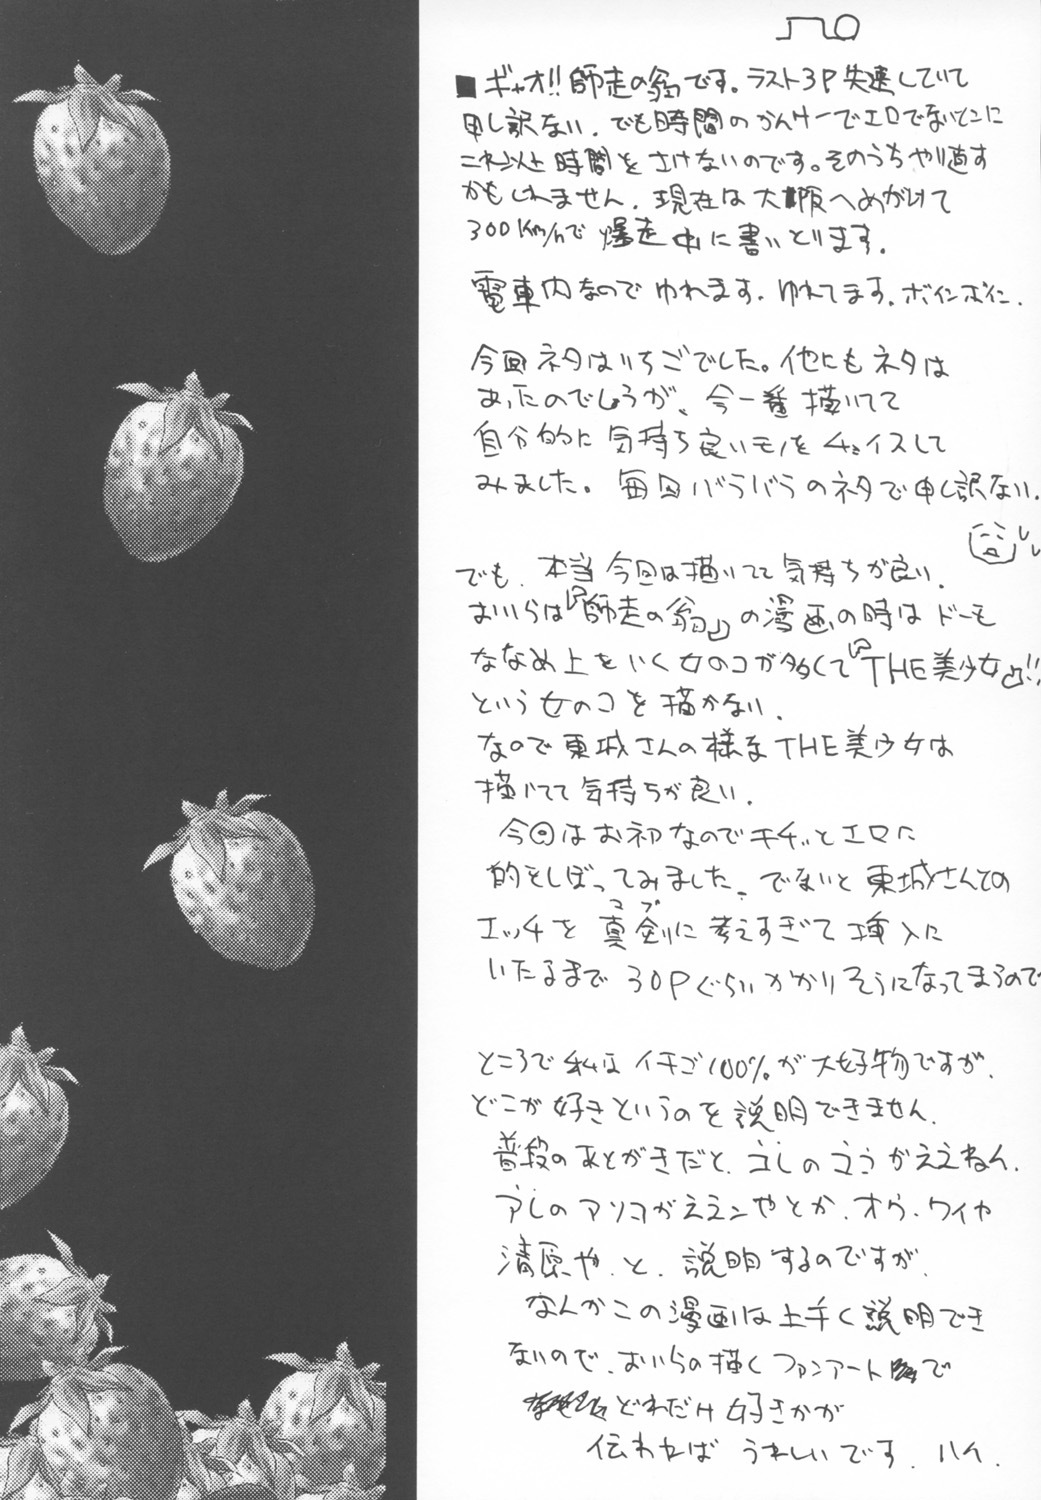 ■ギャオ!!師走の翁です。ラスト3P失速していて
申し訳ない、でも時間のかんけーでエロでないとこに
これ以上時間をさけないのです。そのうちやり直す
かもしれません、現在は大阪へめがけて
300Km/hで爆走中に書いとります。
電車内なのでゆれます、ゆれてます、ボインボイン、
今回ネタはいちごでした。他にもネタは
あったのでしょうが、今一番描いてて
自分的に気持ち良いモノをチョイスして
みました。毎回バラバラのネタで申し訳ない、
でも、本当今回は描いてて気持ちが良い、
おいらは『師走の翁』の漫画の時はドーモ
ななめ上をいく女のコが多くて『THE美少女』!!
という女のコを描かない、
なので東城さんの様なTHE美少女は
描いてて気持ちが良い、
今回はお初なのでキチッとエロに
的をしぼってみました、でないと東城さんでの
エッチを真剣に考えすぎて挿入に
いたるまで30Pぐらいかかりそうになってまうので
ところで私はイチゴ100%が大好物ですが、
どこが好きというのを説明できません、
普段のあとがきだと、コレのココがええねん、
アレのアソコがええンやとか、オウ、ワイや
清原や、と、説明するのですが、
なんかこの漫画は上手く説明でき
ないので、おいらの描くファンアートで
どれだけ好きかが
伝われば うれしいです、ハイ、